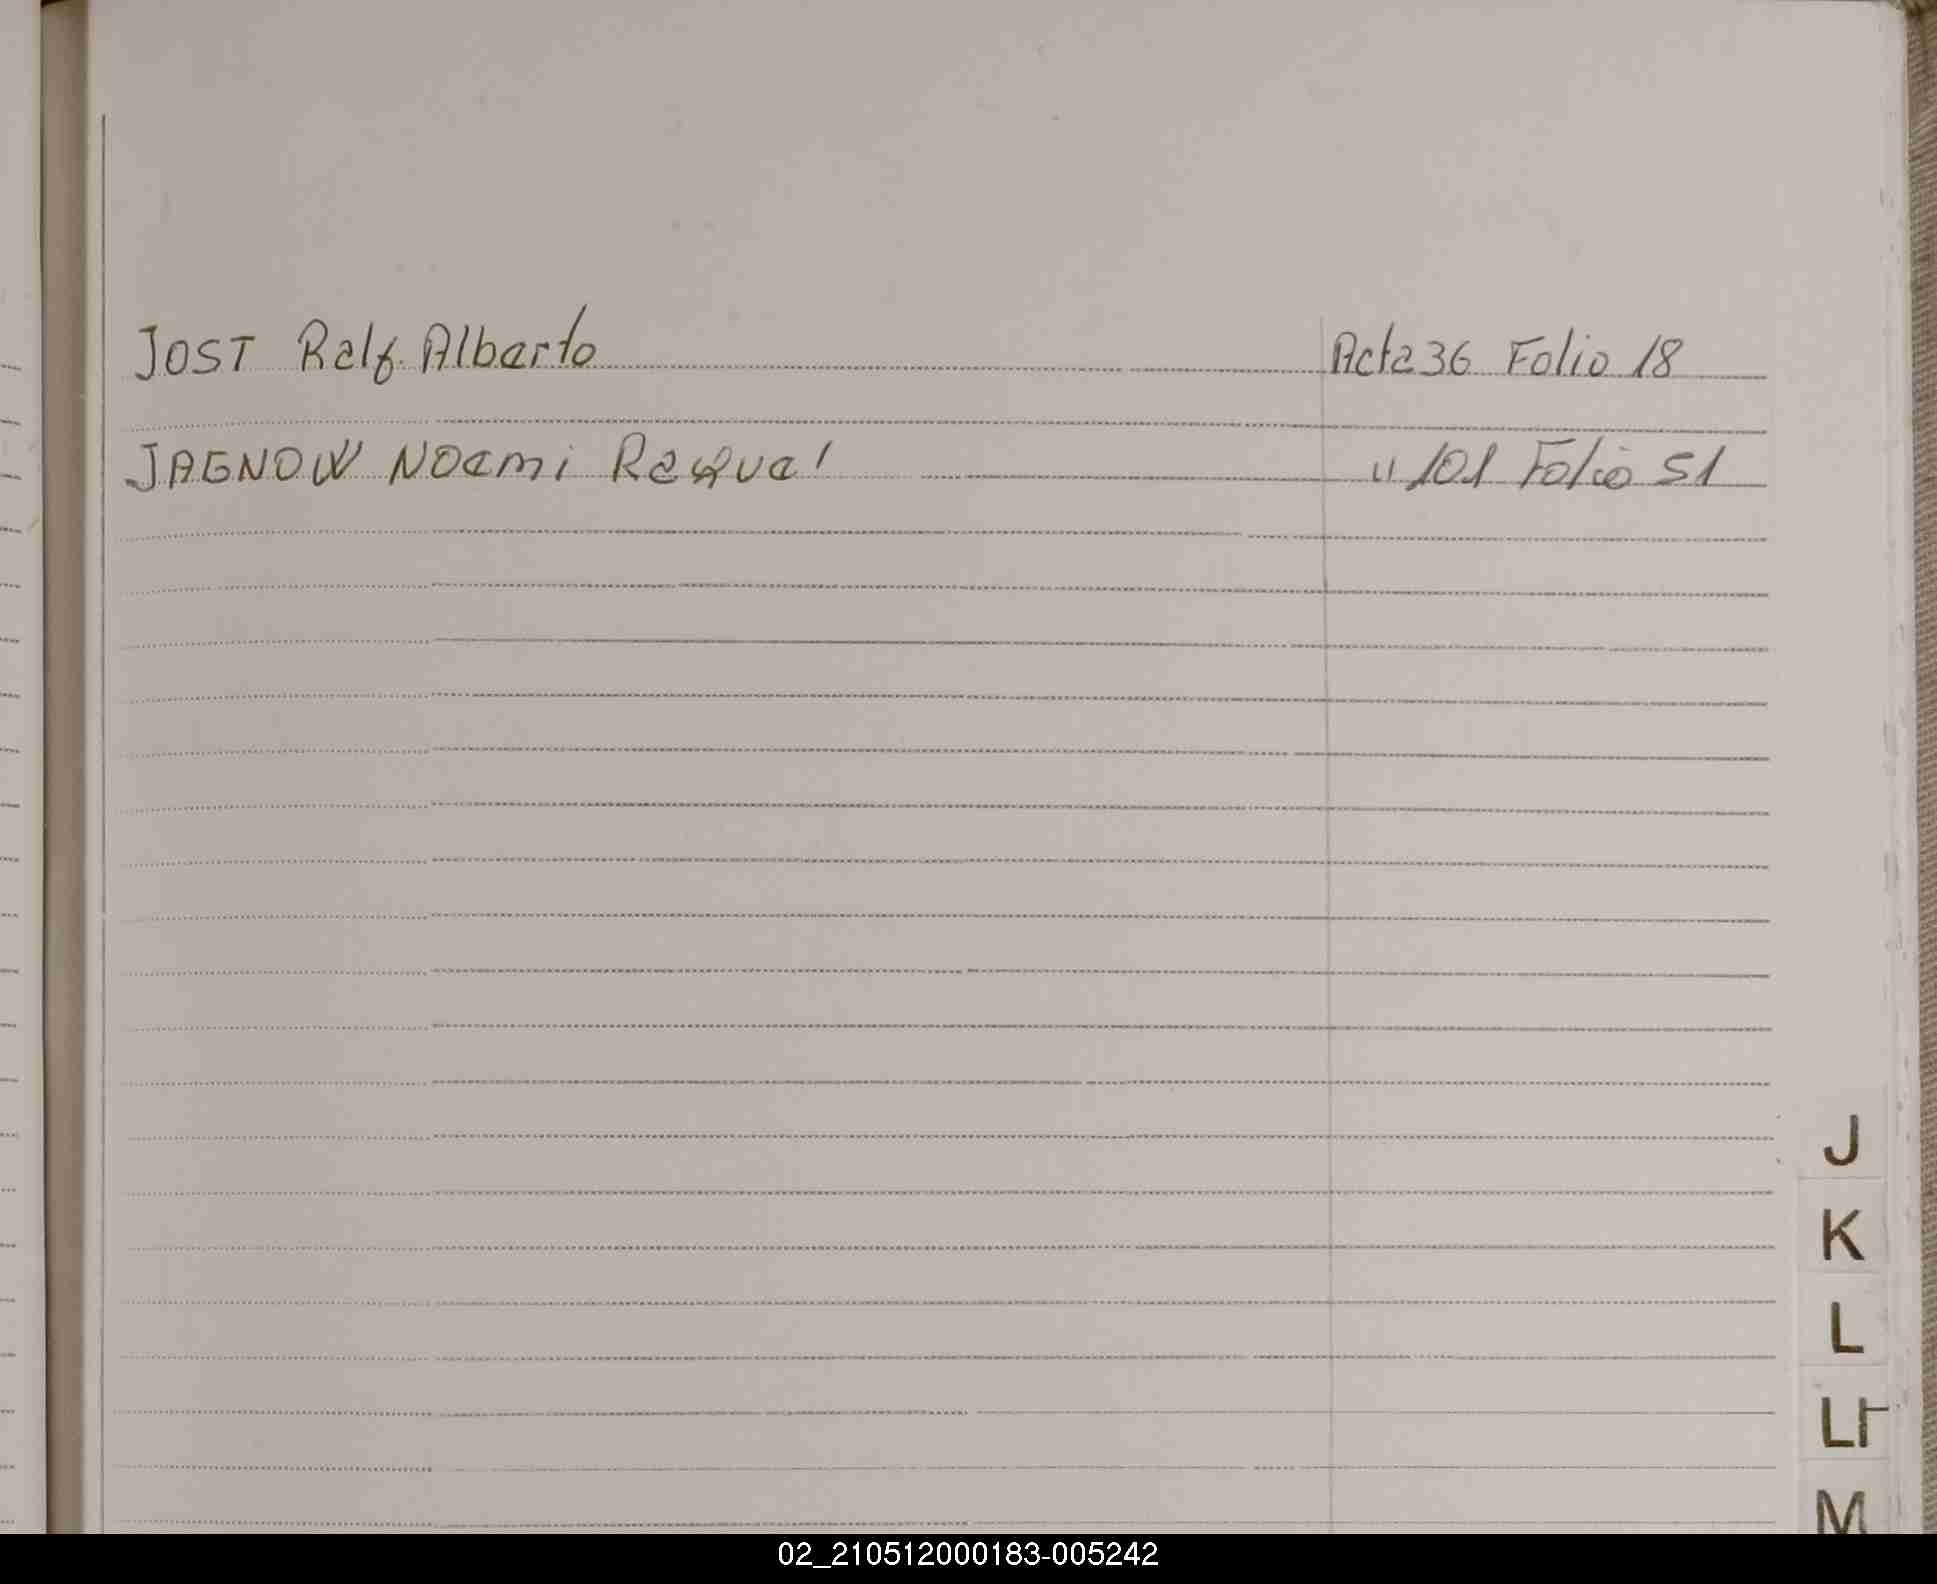 JOST Ralf Alberto Acta 36 Folio 18
JAGNOW Noemi Raquel " 101 Folio 51
J
K
L
LL
M
02_210512000183-005242